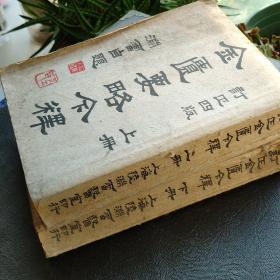 訂正四版
金匱要略今釋
上册
淵雷自題
訂正金匱今釋 上册 上海陸淵雷醫室印行
訂正金匱今釋 下册 上海陸淵雷醫室印行